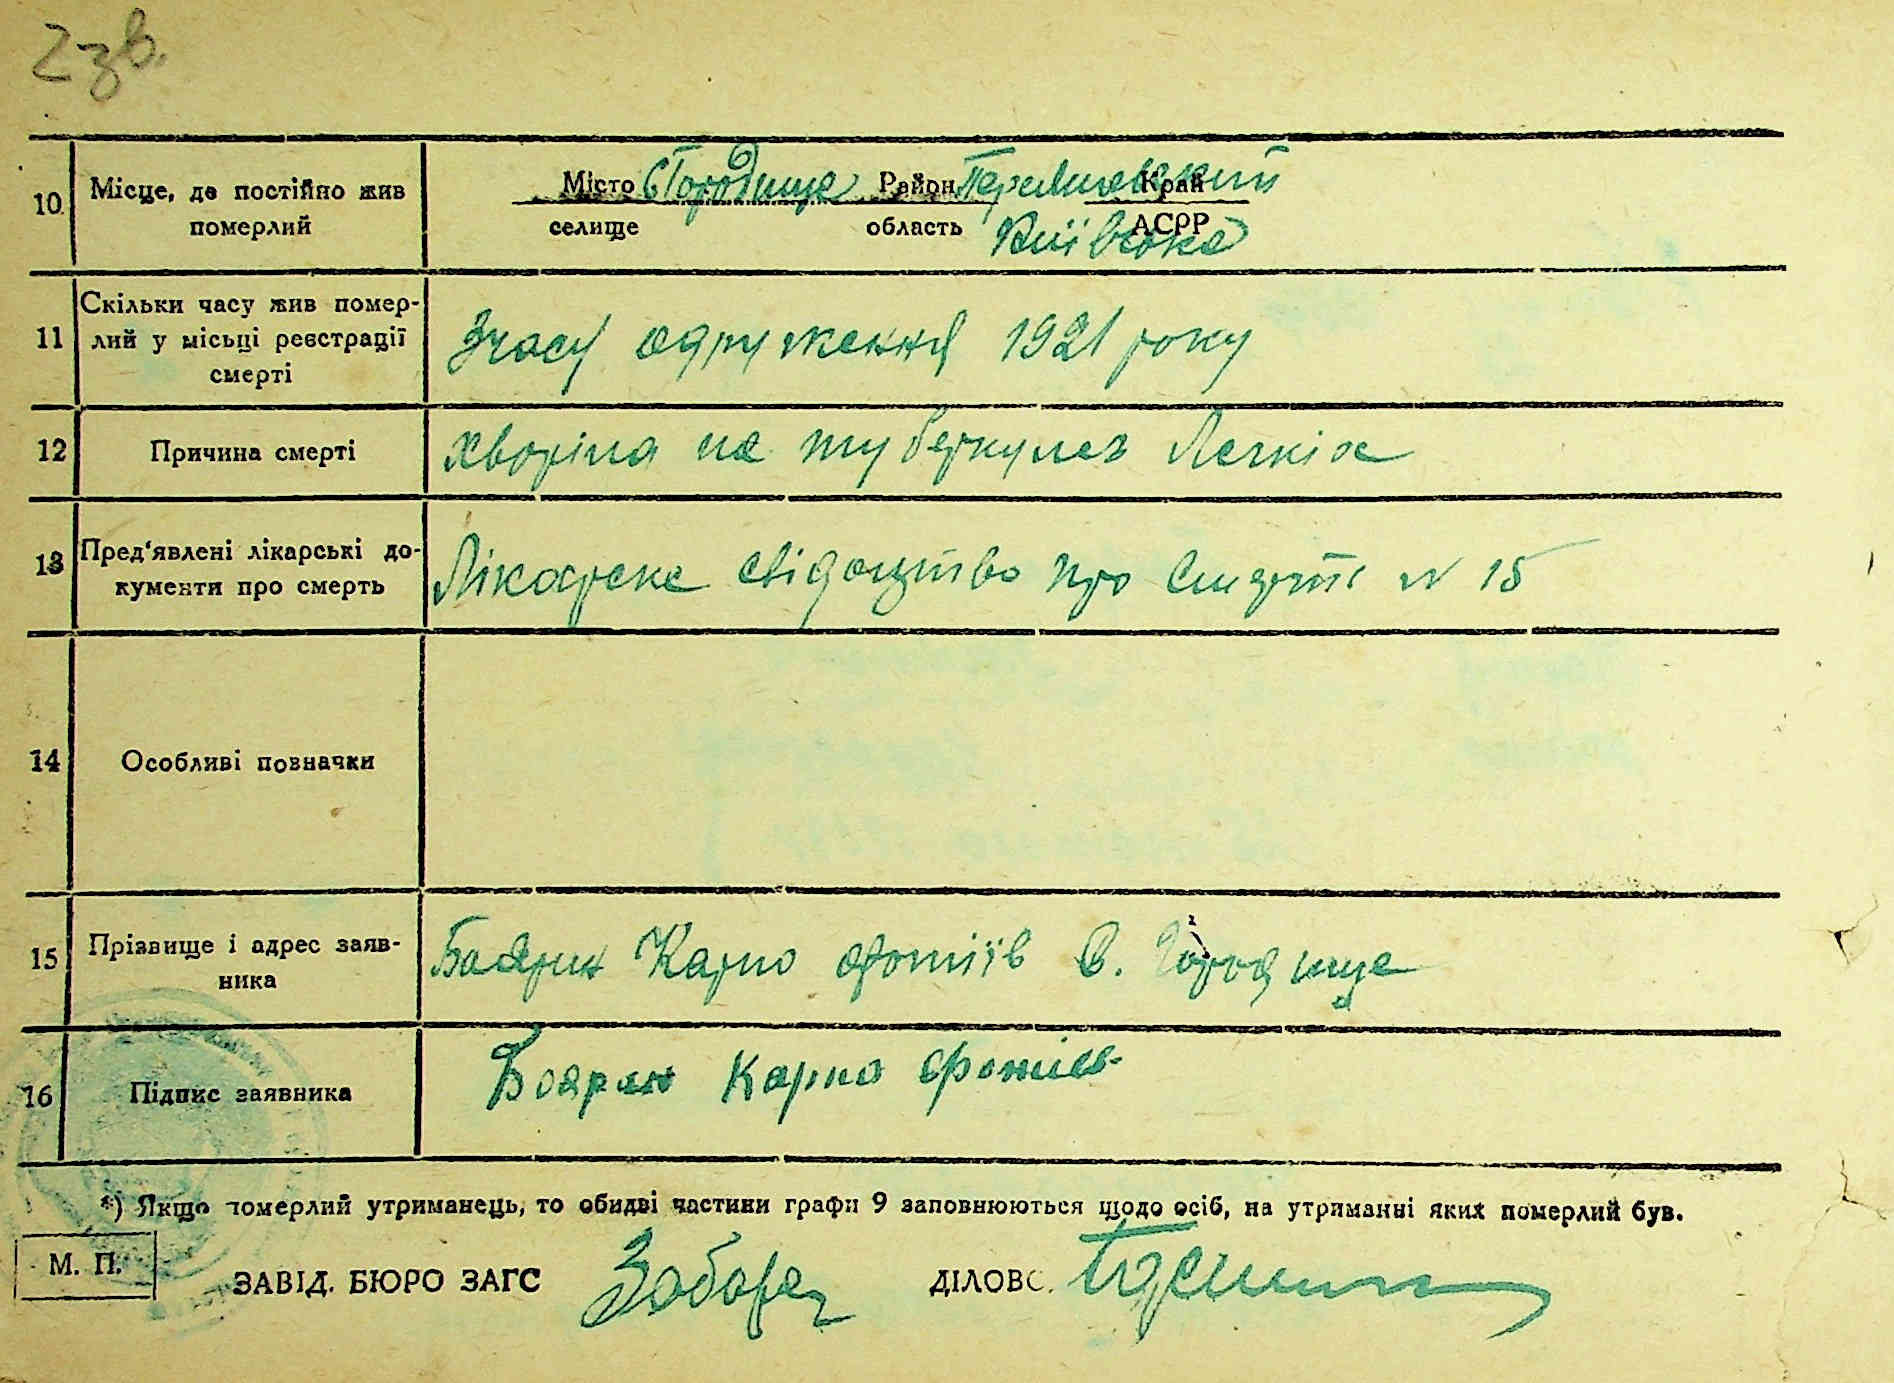 2 зв.
10. Місце, де постійно жив померлий
Місто с Городище Район Край
селище область АСРР
Київська
11 Скільки часу жив помер-
лий у місьці реєстрації
смерті
Зчасу одруження 1921 року
12 Причина смерті
хворіла на туберкульоз Легкіх
13 Пред'явлені лікарські до-
кументи про смерть
Лікарске свідоцтво про Смерть N 15
14 Особливі позначки
15 Прізвище і адрес заяв-
ника
Боярин Карпо Фотіїв С. Городище
16 Підпис заявника
Боярин Карпо Фотиев
*) Якщо померлий утриманець, то обидві частини графи 9 заповнюються щодо осіб, на утриманні яких померлий був.
М. П.
ЗАВІД. БЮРО ЗАГС
ДІЛОВС.